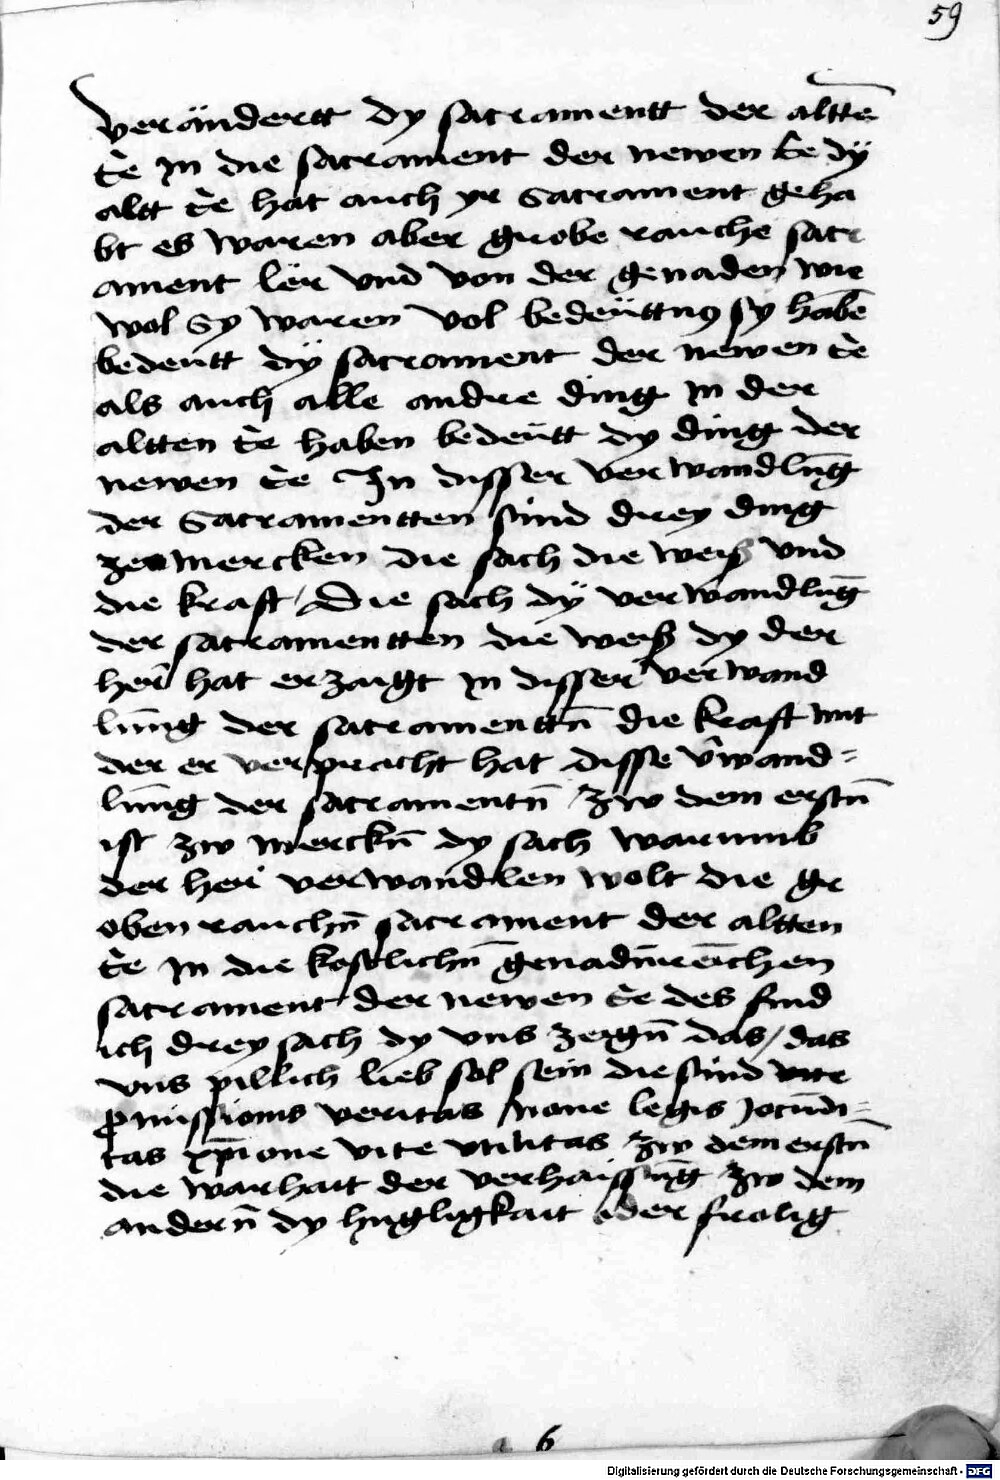 59
verändertt dy sacramentt der altt̄e
Ee Jn die sacrament der newen Ee dÿ
altt Ee hat auch yr Sacrament geha
bt es waren aber grobe rauche sacr
ament lër vnd von der genaden wie
wol Sy waren vol bedeüttn9 sy habē
bedeütt dÿ sacrament der newen Ee
als auch alle andre ding Jn der
altten Ee haben bedeütt dy ding der
newen Ee Jn disser verwandlūg
der Sacramentten sind drey ding
ze mercken die sach die weiß vnd
die kraft / Die sach dÿ verwandlūg
der sacramentten die weiß dy der
her̄ hat erzaigt Jn disser verwand
lūng der sacramenttn̄ die kraft mit
der er verpracht hat disse v̄wand=
lūng der sacramentn̄ / Zw dem erstn̄
ist zw merckn̄ dy sach warumb
der her verwandlen wolt die gr
oben rauchn̄ sacrament der altten
Ee Jn die kostlichn̄ genadn̄reichen
sacrament der newen Ee des find
ich drey sach dy vns zergn̄ das / das
vns pillich lieb sol sein die sind vite
promissionis veritas / none legis Jocūdi=
tas xp̄ione vite vtilitas / Zw dem erstn̄
die warhait der verhaissūg Zw dem
andern̄ dy hugligkait oder frolig
6
Digitalisierung gefördert durch die Deutsche Forschungsgemeinschaft - DFG